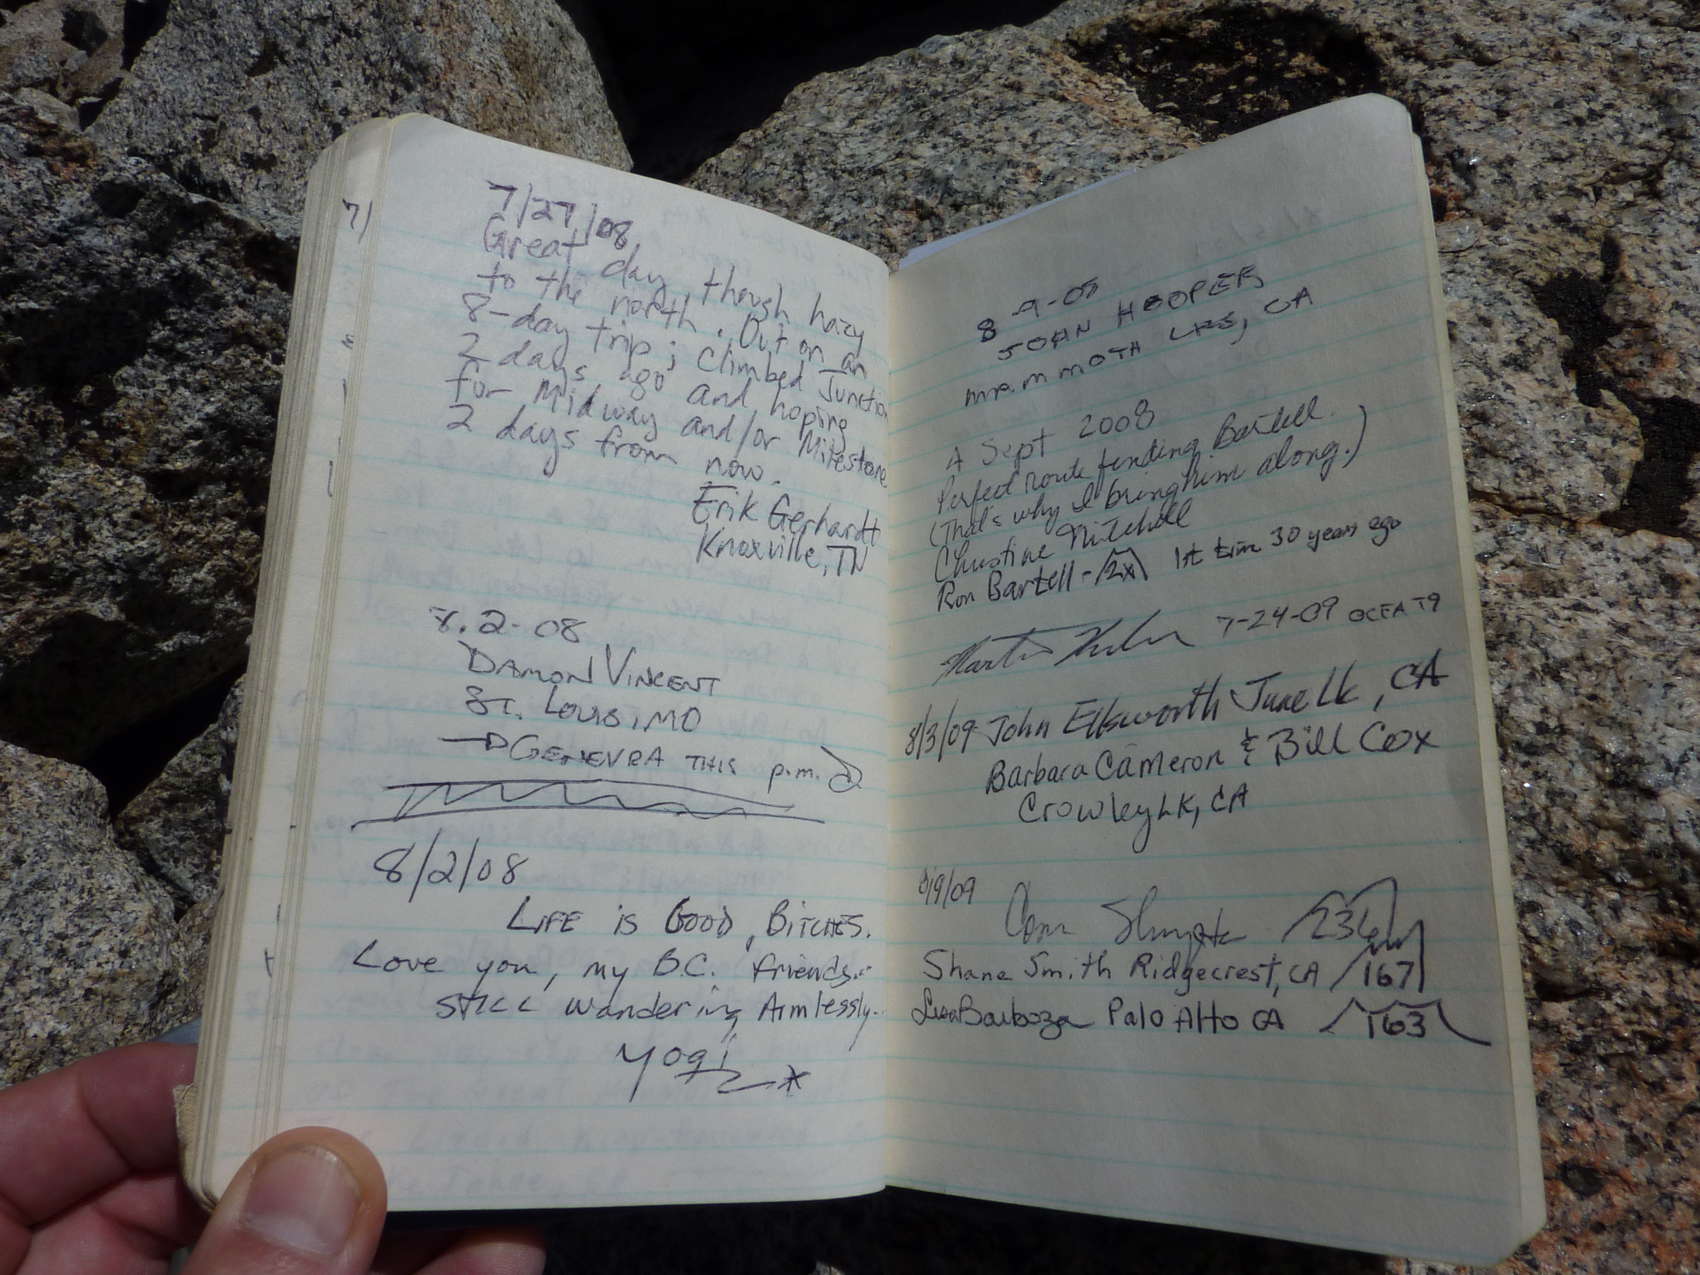 7/27/08
Great day, though hazy
to the north. Out on an
8-day trip; climbed Junction
2 days ago and hoping
for Midway and/or Milestone
2 days from now.
Erik Gerhardt
Knoxville, TN
8.2-08
DAMON VINCENT
ST. LOUIS, MO
GENEVRA THIS p.m.
8/2/08
LIFE IS GOOD, BITCHES.
Love you, my B.C. friends...
STILL wandering Aimlessly..
Yogi
JOHN HOOPER,
MAMMOTH LKS, CA
4 Sept 2008
Perfect route finding Bartell.
(That's why I bring him along.)
Christine Mitchell
Ron Bartell - 2x 1st time 30 years ago
7-24-09
8/3/09 John Ellsworth June Lk, CA
Barbara Cameron & Bill Cox
Crowley Lk, CA
236
Shane Smith Ridgecrest, CA 167
Lisa Barboza Palo Alto CA 163